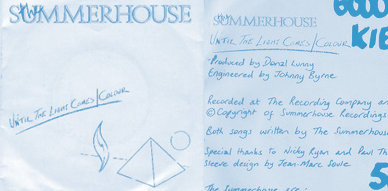 the
SUMMERHOUSE
UNTIL THE LIGHT COMES/COLOUR
the
SUMMERHOUSE
UNTIL THE LIGHT COMES/COLOUR
Produced by Donal Lunny
Engineered by Johnny Byrne
Recorded at The Recording Company
© Copyright of Summerhouse Recordings
Both songs written by The Summerhouse
Special thanks to Nicky Ryan and Paul
Sleeve design by Jean-Marc Soule
The Summerhouse are:
5